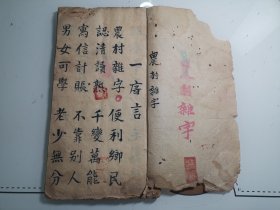 農村雜字
農村雜字
一序言
農村雜字。便利鄉民
認清讀熟 千變萬能
寫信計賬 不靠別人
男女可學 老少無分